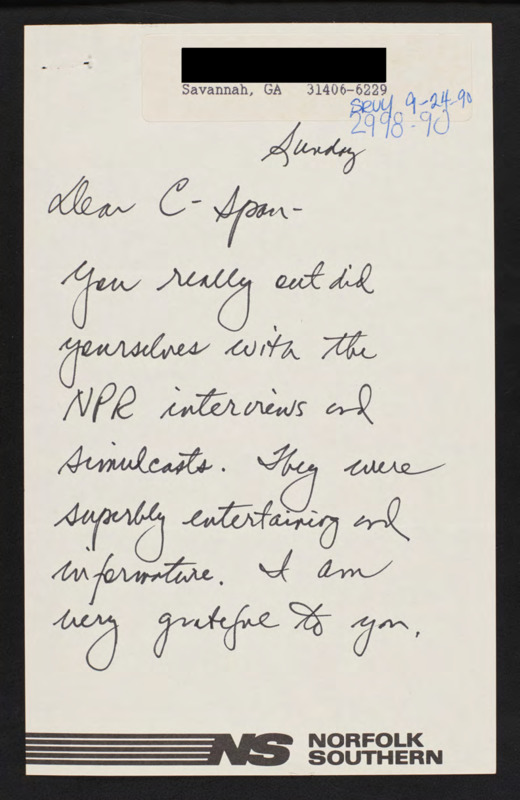 Savannah, GA 31406-6229
SRVY 9-24-90
2998-90
Sunday
Dear C-Span-
You really out did
yourselves with the
NPR interviews and
simulcasts. They were
superbly entertaining and
informative. I am
very grateful to you.
NS NORFOLK
SOUTHERN